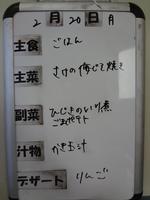 2月20日月
主食 ごはん
主菜 さけの梅じそ焼き
副菜 ひじきのいり煮
ごまポテト
汁物 かき玉汁
デザート りんご